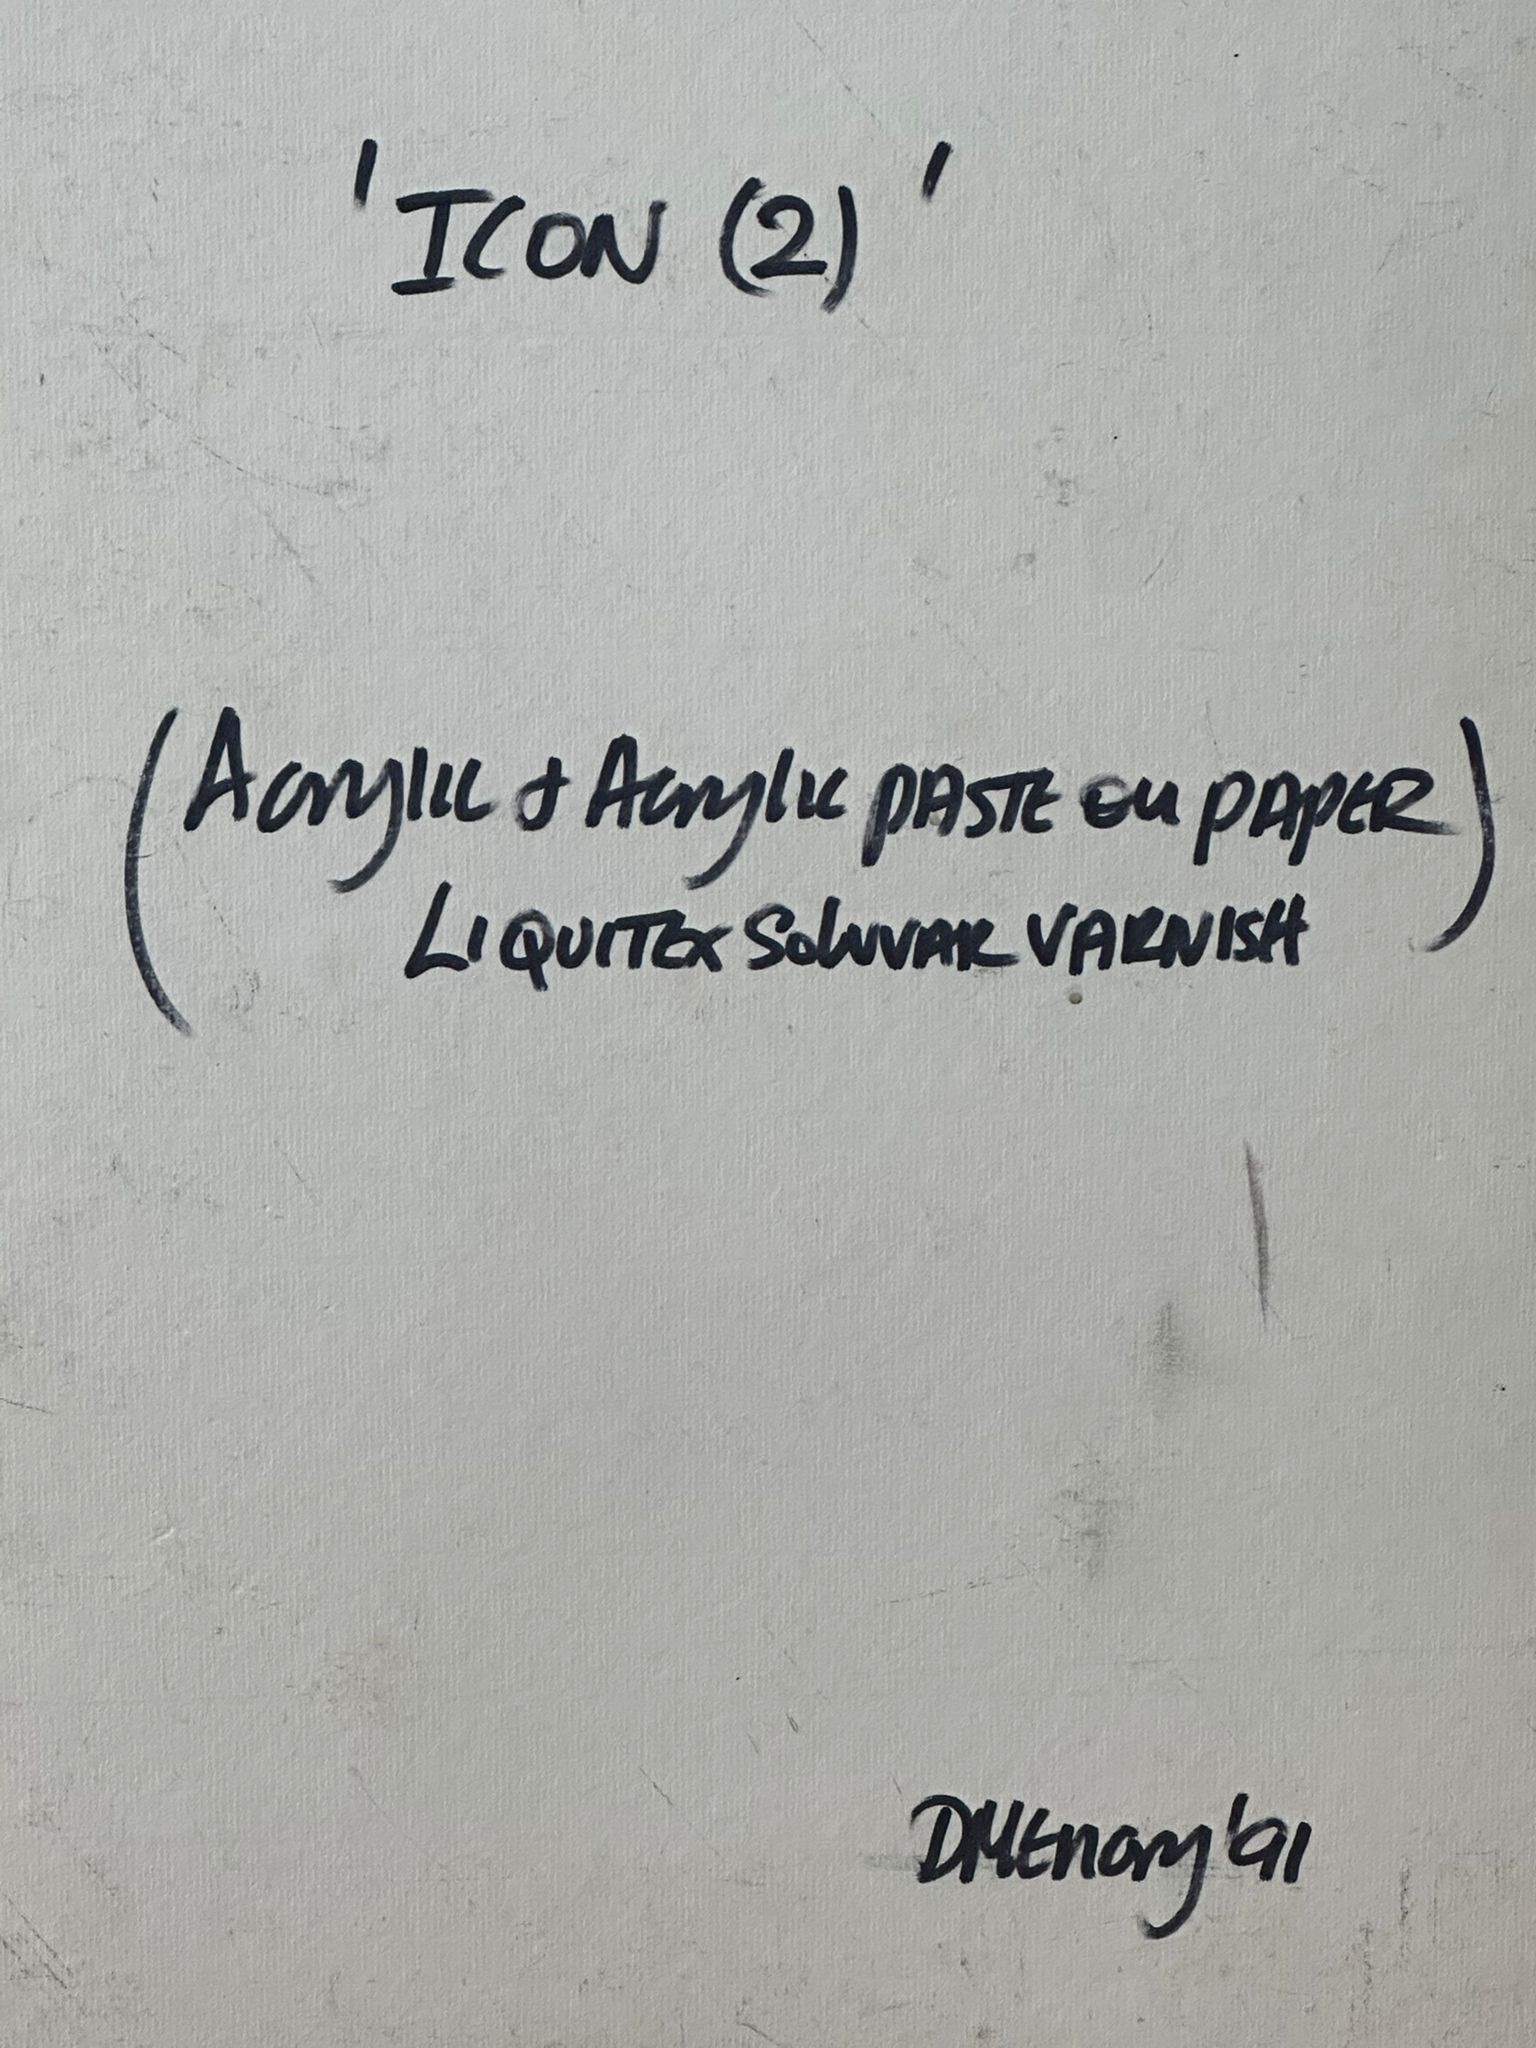 'ICON (2)'
(Acrylic & Acrylic PASTE on PAPER
LIQUITEX Soluvar VARNISH)
'91